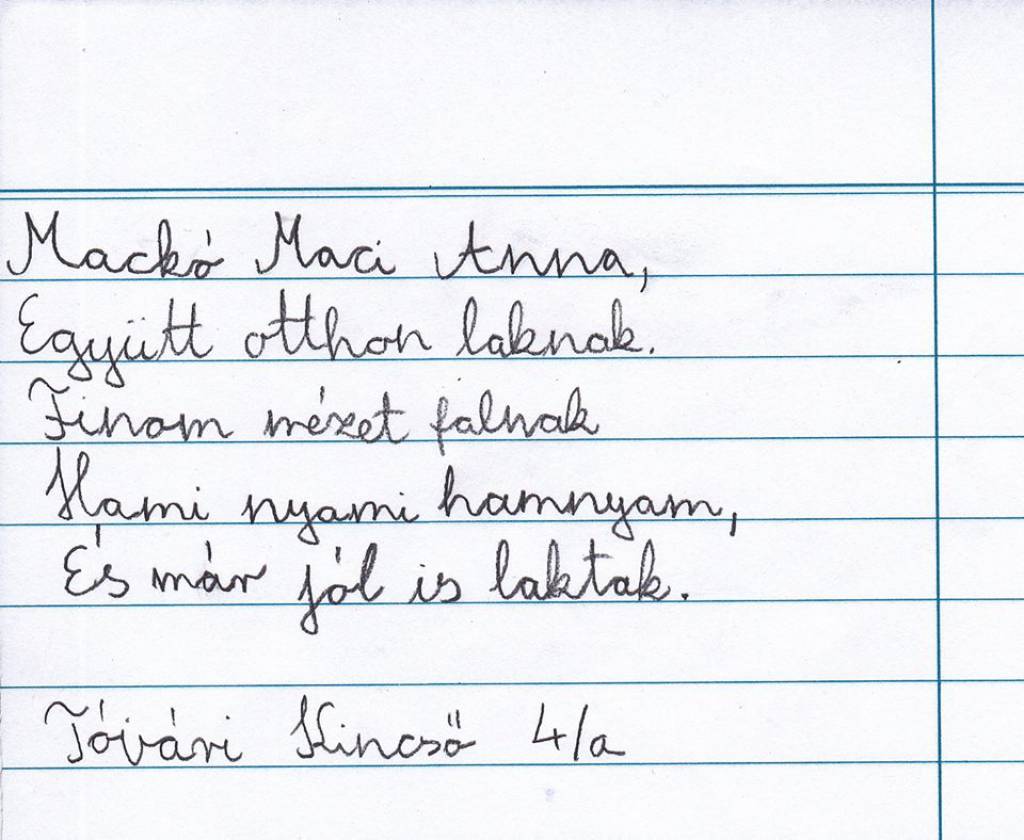 Mackó Maci Anna,
Együtt otthon laknak.
Finom mézet falnak
Hami nyami hamnyam,
És már jól is laktak.
Tóvári Kincső 4/a